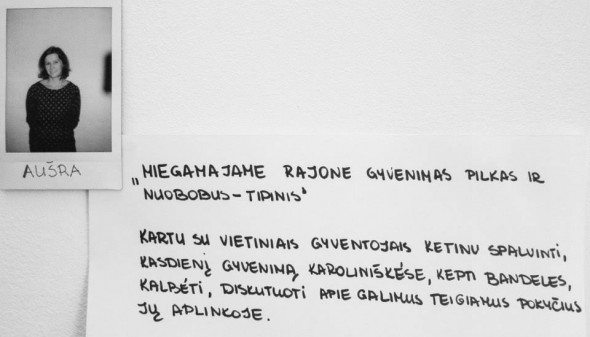 AUŠRA
„MIEGAMAJAME RAJONE GYVENIMAS PILKAS IR
NUOBOBUS-TIPINIS“
KARTU SU VIETINIAIS GYVENTOJAIS KETINU SPALVINTI,
KASDIENĮ GYVENIMĄ KAROLINIŠKĖSE, KEPTI BANDELES,
KALBĖTI, DISKUTUOTI APIE GALIMUS TEIGIAMUS POKYČIUS
JŲ APLINKOJE.